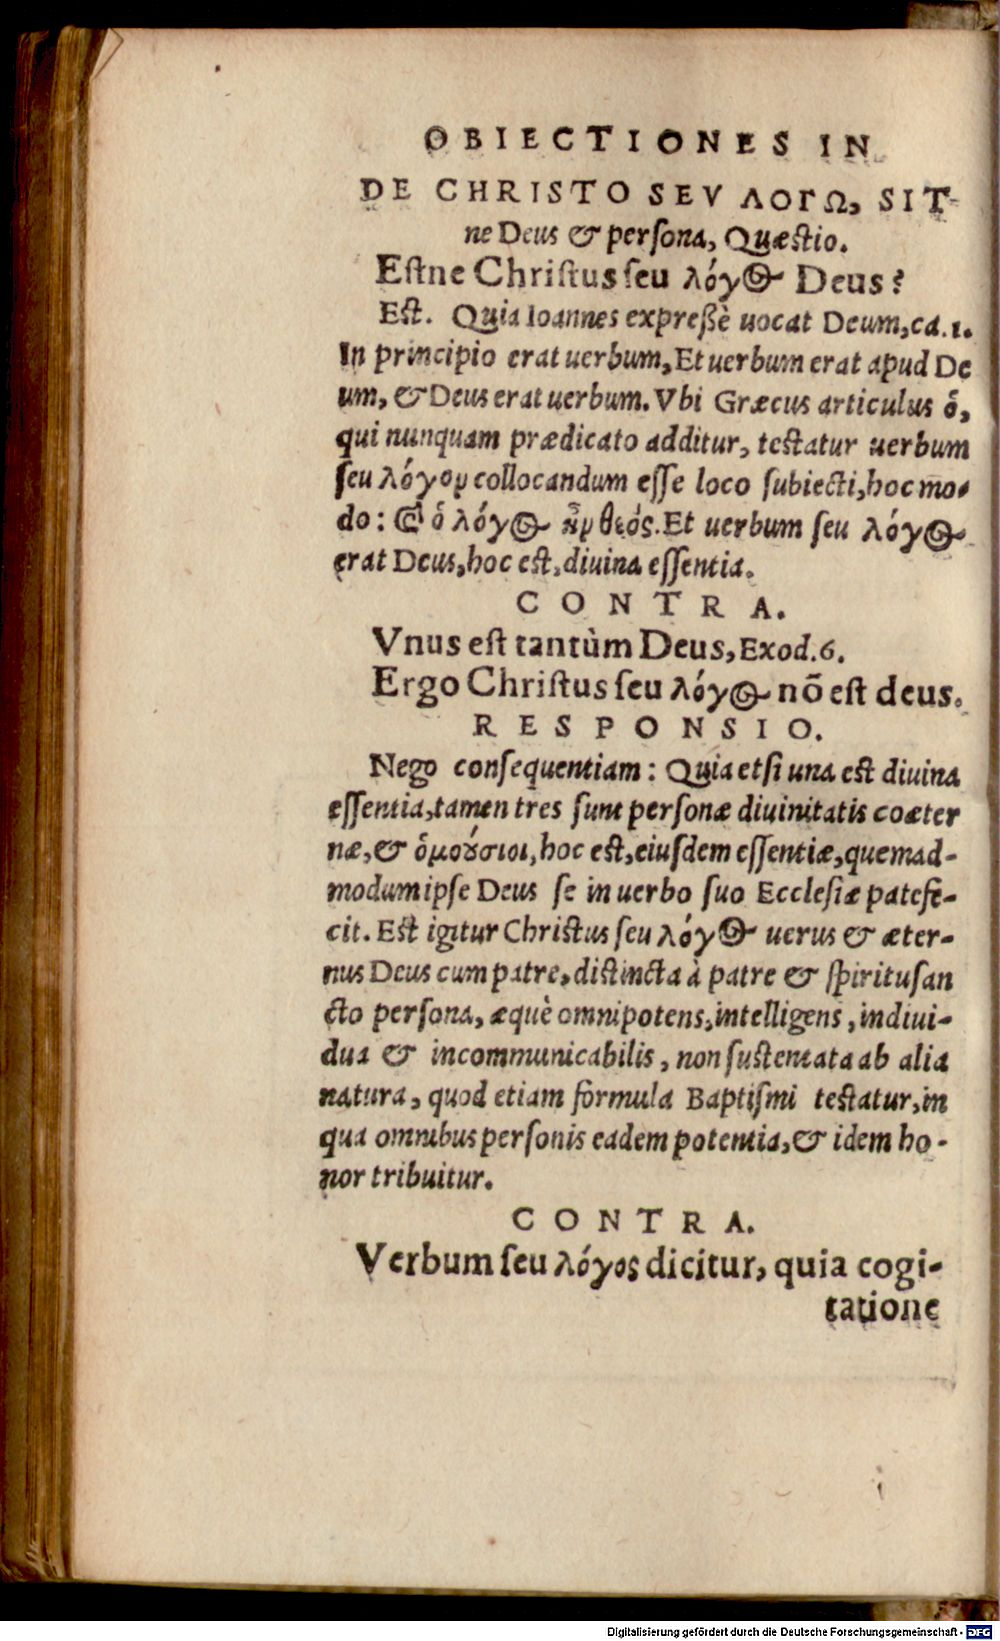 OBIECTIONES IN
DE CHRISTO SEV ΛΟΓΩ, SIT-
ne Deus & persona, Quæstio.
Estne Christus seu λόγος Deus?
Est. Quia Ioannes expreßè uocat Deum, ca. 1.
In principio erat uerbum, Et uerbum erat apud De
um, & Deus erat uerbum. Vbi Græcus articulus ὁ,
qui nunquam prædicato additur, testatur uerbum
seu λόγον collocandum esse loco subiecti, hoc mo-
do: καὶ ὁ λόγος ἦν θεός. Et uerbum seu λόγος
erat Deus, hoc est, diuina essentia.
CONTRA.
Vnus est tantùm Deus, Exod. 6.
Ergo Christus seu λόγος nõ est deus.
RESPONSIO.
Nego consequentiam: Quia etsi una est diuina
essentia, tamen tres sunt personæ diuinitatis coæter
næ, & ὁμούσιοι, hoc est, eiusdem essentiæ, quemad-
modum ipse Deus se in uerbo suo Ecclesiæ patefe-
cit. Est igitur Christus seu λόγος uerus & æter-
nus Deus cum patre, distincta à patre & spiritu san
cto persona, æquè omnipotens, intelligens, indiui-
dua & incommunicabilis, non sustentata ab alia
natura, quod etiam formula Baptismi testatur, in
qua omnibus personis eadem potentia, & idem ho-
nor tribuitur.
CONTRA.
Verbum seu λόγος dicitur, quia cogi-
tatione
Digitalisierung gefördert durch die Deutsche Forschungsgemeinschaft - DFG